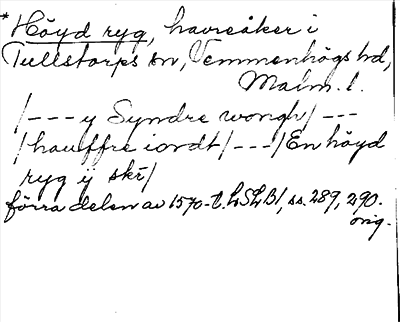 *Höyd ryg, havreåker i
Tullstorps sn, Vemmenhögs hd,
Malm. l.
/--- y Syndre wongh/ ---
/hauffre iordt/---/En höyd
ryg ij skr/
förra delen av 1570-t. LSLB1, ss. 289, 290.
orig.